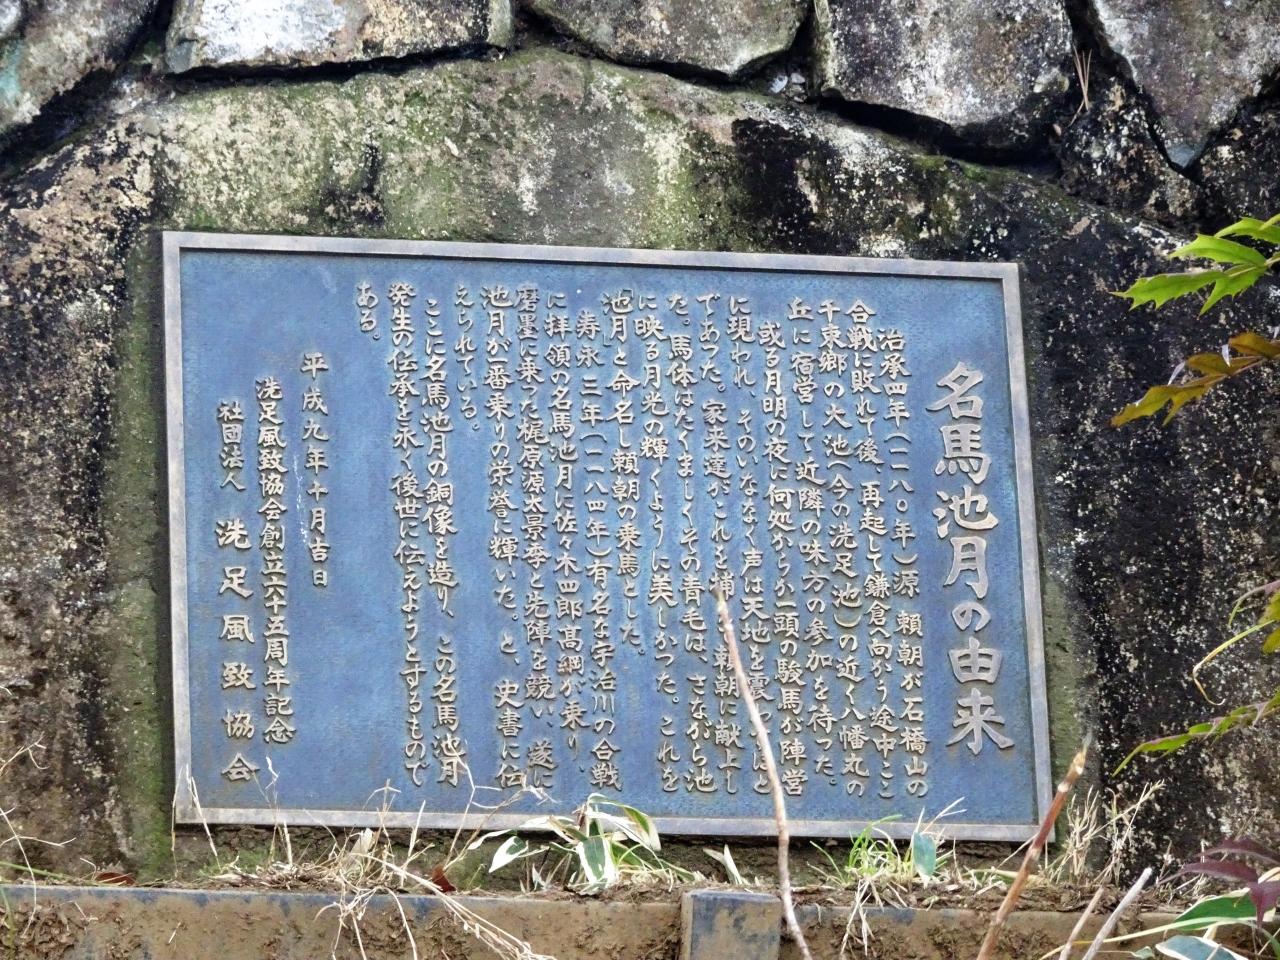 名馬池月の由来
治承四年(一一八〇年)源頼朝が石橋山の
合戦に敗れて後、再起して鎌倉へ向かう途中ここ
千束郷の大池(今の洗足池)の近く八幡丸の
丘に宿営して近隣の味方の参加を待った。
或る月明の夜に何処からか一頭の駿馬が陣営
に現われ、そのいななく声は天地を震わすほど
であった。家来達がこれを捕え頼朝に献上し
た。馬体はたくましくその青毛は、さながら池
に映る月光の輝くように美しかった。これを
「池月」と命名し頼朝の乗馬とした。
寿永三年(一一八四年)有名な宇治川の合戦
に拝領の名馬池月に佐々木四郎高綱が乗り、
磨墨に乗った梶原源太景季と先陣を競い、遂に
池月が一番乗りの栄誉に輝いた。と、史書に伝
えられている。
ここに名馬池月の銅像を造り、この名馬池月
発生の伝承を永く後世に伝えようとするもので
ある。
平成九年十月吉日
洗足風致協会創立六十五周年記念
社団法人 洗足風致協会